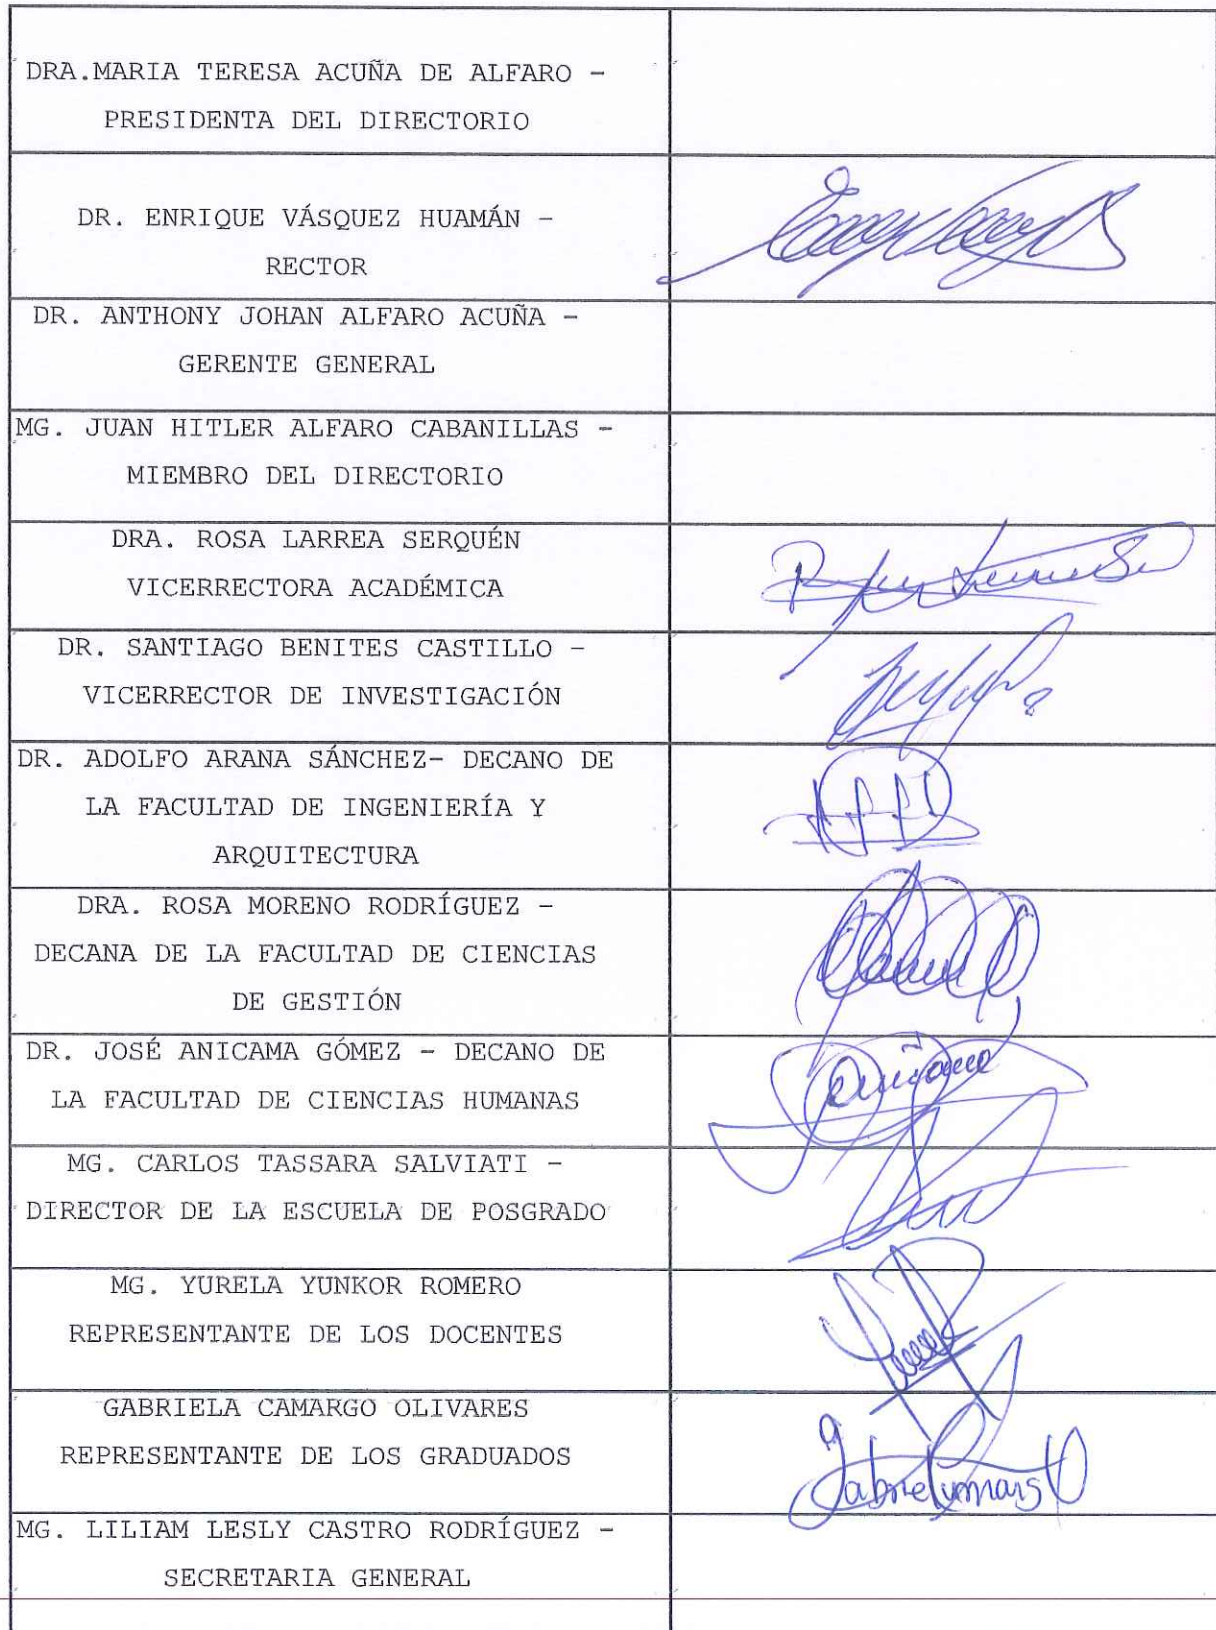 DRA.MARIA TERESA ACUÑA DE ALFARO -
PRESIDENTA DEL DIRECTORIO
DR. ENRIQUE VÁSQUEZ HUAMÁN -
RECTOR
DR. ANTHONY JOHAN ALFARO ACUÑA -
GERENTE GENERAL
MG. JUAN HITLER ALFARO CABANILLAS -
MIEMBRO DEL DIRECTORIO
DRA. ROSA LARREA SERQUÉN
VICERRECTORA ACADÉMICA
DR. SANTIAGO BENITES CASTILLO -
VICERRECTOR DE INVESTIGACIÓN
DR. ADOLFO ARANA SÁNCHEZ- DECANO DE
LA FACULTAD DE INGENIERÍA Y
ARQUITECTURA
DRA. ROSA MORENO RODRÍGUEZ -
DECANA DE LA FACULTAD DE CIENCIAS
DE GESTIÓN
DR. JOSÉ ANICAMA GÓMEZ - DECANO DE
LA FACULTAD DE CIENCIAS HUMANAS
MG. CARLOS TASSARA SALVIATI -
DIRECTOR DE LA ESCUELA DE POSGRADO
MG. YURELA YUNKOR ROMERO
REPRESENTANTE DE LOS DOCENTES
GABRIELA CAMARGO OLIVARES
REPRESENTANTE DE LOS GRADUADOS
MG. LILIAM LESLY CASTRO RODRÍGUEZ -
SECRETARIA GENERAL